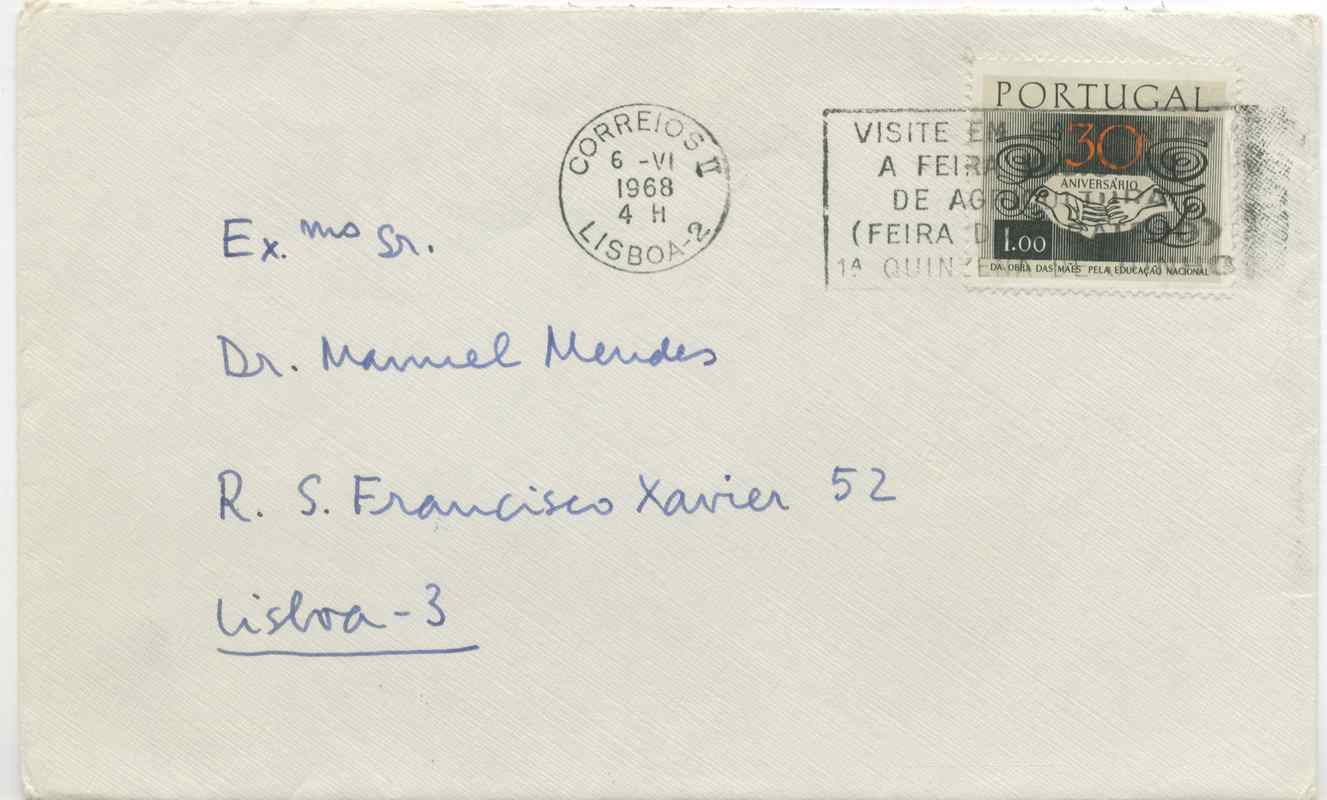 PORTUGAL
30
ANIVERSÁRIO
1.00
DA OBRA DAS MÃES PELA EDUCAÇÃO NACIONAL
CORREIOS
6 -VI
1968
4 H
LISBOA-2
VISITE EM
A FEIRA
DE AGRICULTURA
(FEIRA
1ª QUINZENA DE JUNHO
Ex.mo Sr.
Dr. Manuel Mendes
R. S. Francisco Xavier 52
Lisboa-3